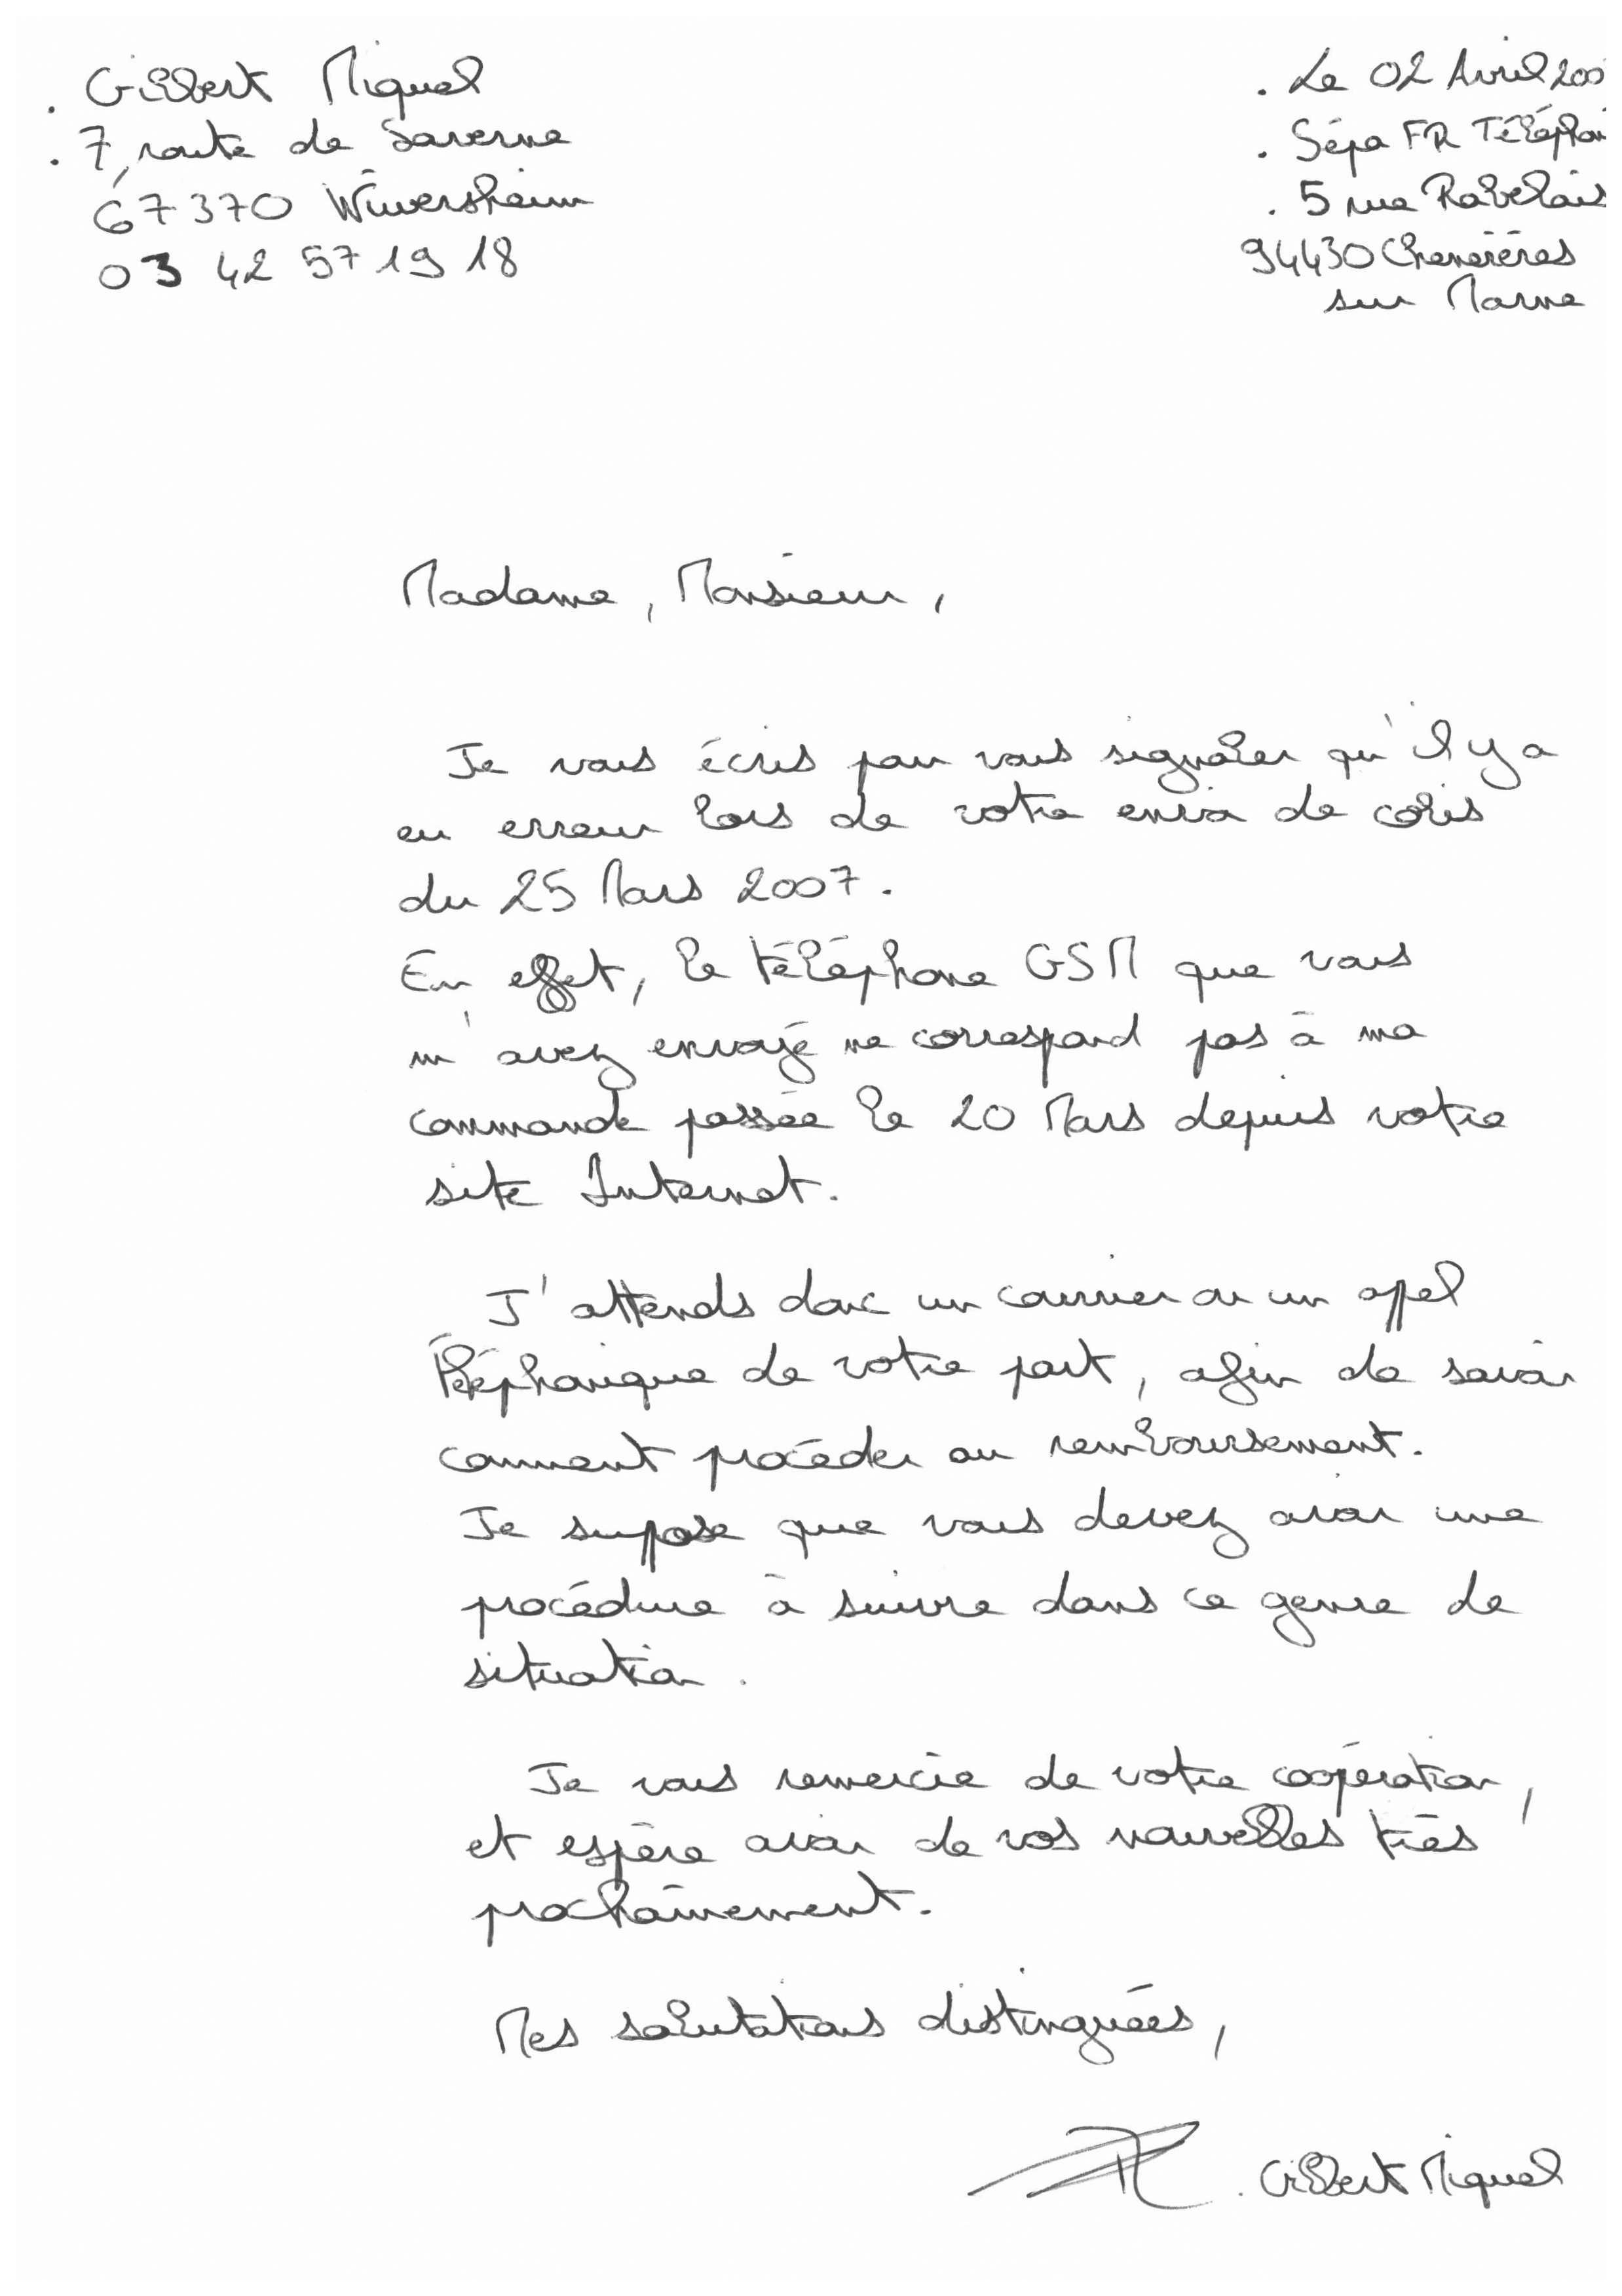 Gilbert Miquel
7, route de Saverne
67370 Wiwersheim
03 42 57 19 18
Le 02 Avril 200
Sépa FR Télépho
5 rue Rabelais
94430 Chenevières
sur Marne
Madame, Monsieur,
Je vous écris pour vous signaler qu'il y a
eu erreur lors de votre envoi de colis
du 25 Mars 2007.
En effet, le téléphone GSM que vous
m'avez envoyé ne correspond pas à ma
commande passée le 20 Mars depuis votre
site Internet.
J'attends donc un courrier ou un appel
téléphonique de votre part, afin de savoir
comment procéder au remboursement.
Je suppose que vous devez avoir une
procédure à suivre dans ce genre de
situation.
Je vous remercie de votre coopération,
et espère avoir de vos nouvelles très
prochainement.
Mes salutations distinguées,
Gilbert Miquel